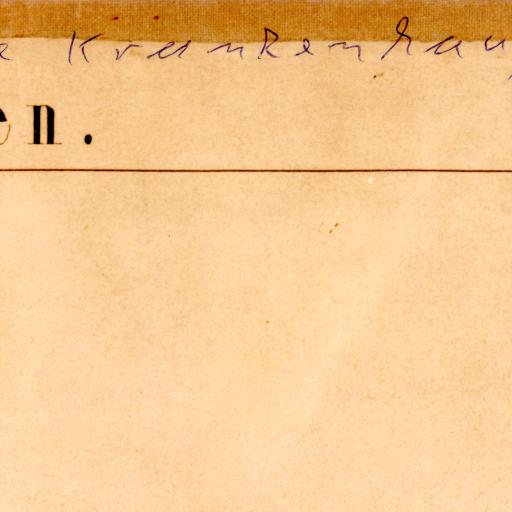 e Krankenhau
en.